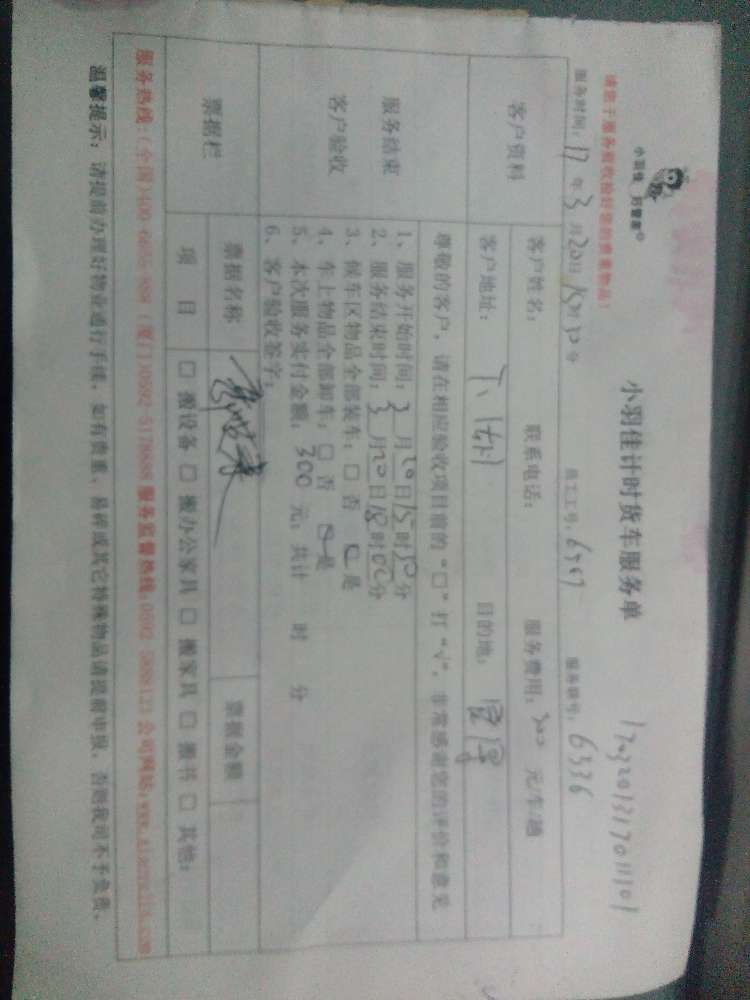 小羽佳 好管家®
小羽佳计时货车服务单
请您于服务前收拾好您的贵重物品!
服务时间:17年3月20日15时30分 员工工号:6567 服务牌号:6536
客户资料
客户姓名: 联系电话: 服务费用:300元/车/趟
客户地址: 目的地:
服务结束
客户验收
尊敬的客户,请在相应验收项目前的“□”打“√”,非常感谢您的评价和意见
1、服务开始时间:3月20日15时30分
2、服务结束时间:3月20日18时00分
3、候车区物品全部装车:□否 □是
4、车上物品全部卸车:□否 □是
5、本次服务实付金额:300元,共计 时 分
6、客户验收签字:
票据栏
票据名称 票据金额
项目 □搬设备 □搬办公家具 □搬家具 □搬书 □其他:
服务热线:(全国)400-6655-988 (厦门)0592-5178888 服务监督热线:0592-5888123 公司网站:
温馨提示:请提前办理好物业通行手续,如有贵重、易碎或其它特殊物品请提前申报,否则我司不予负责。